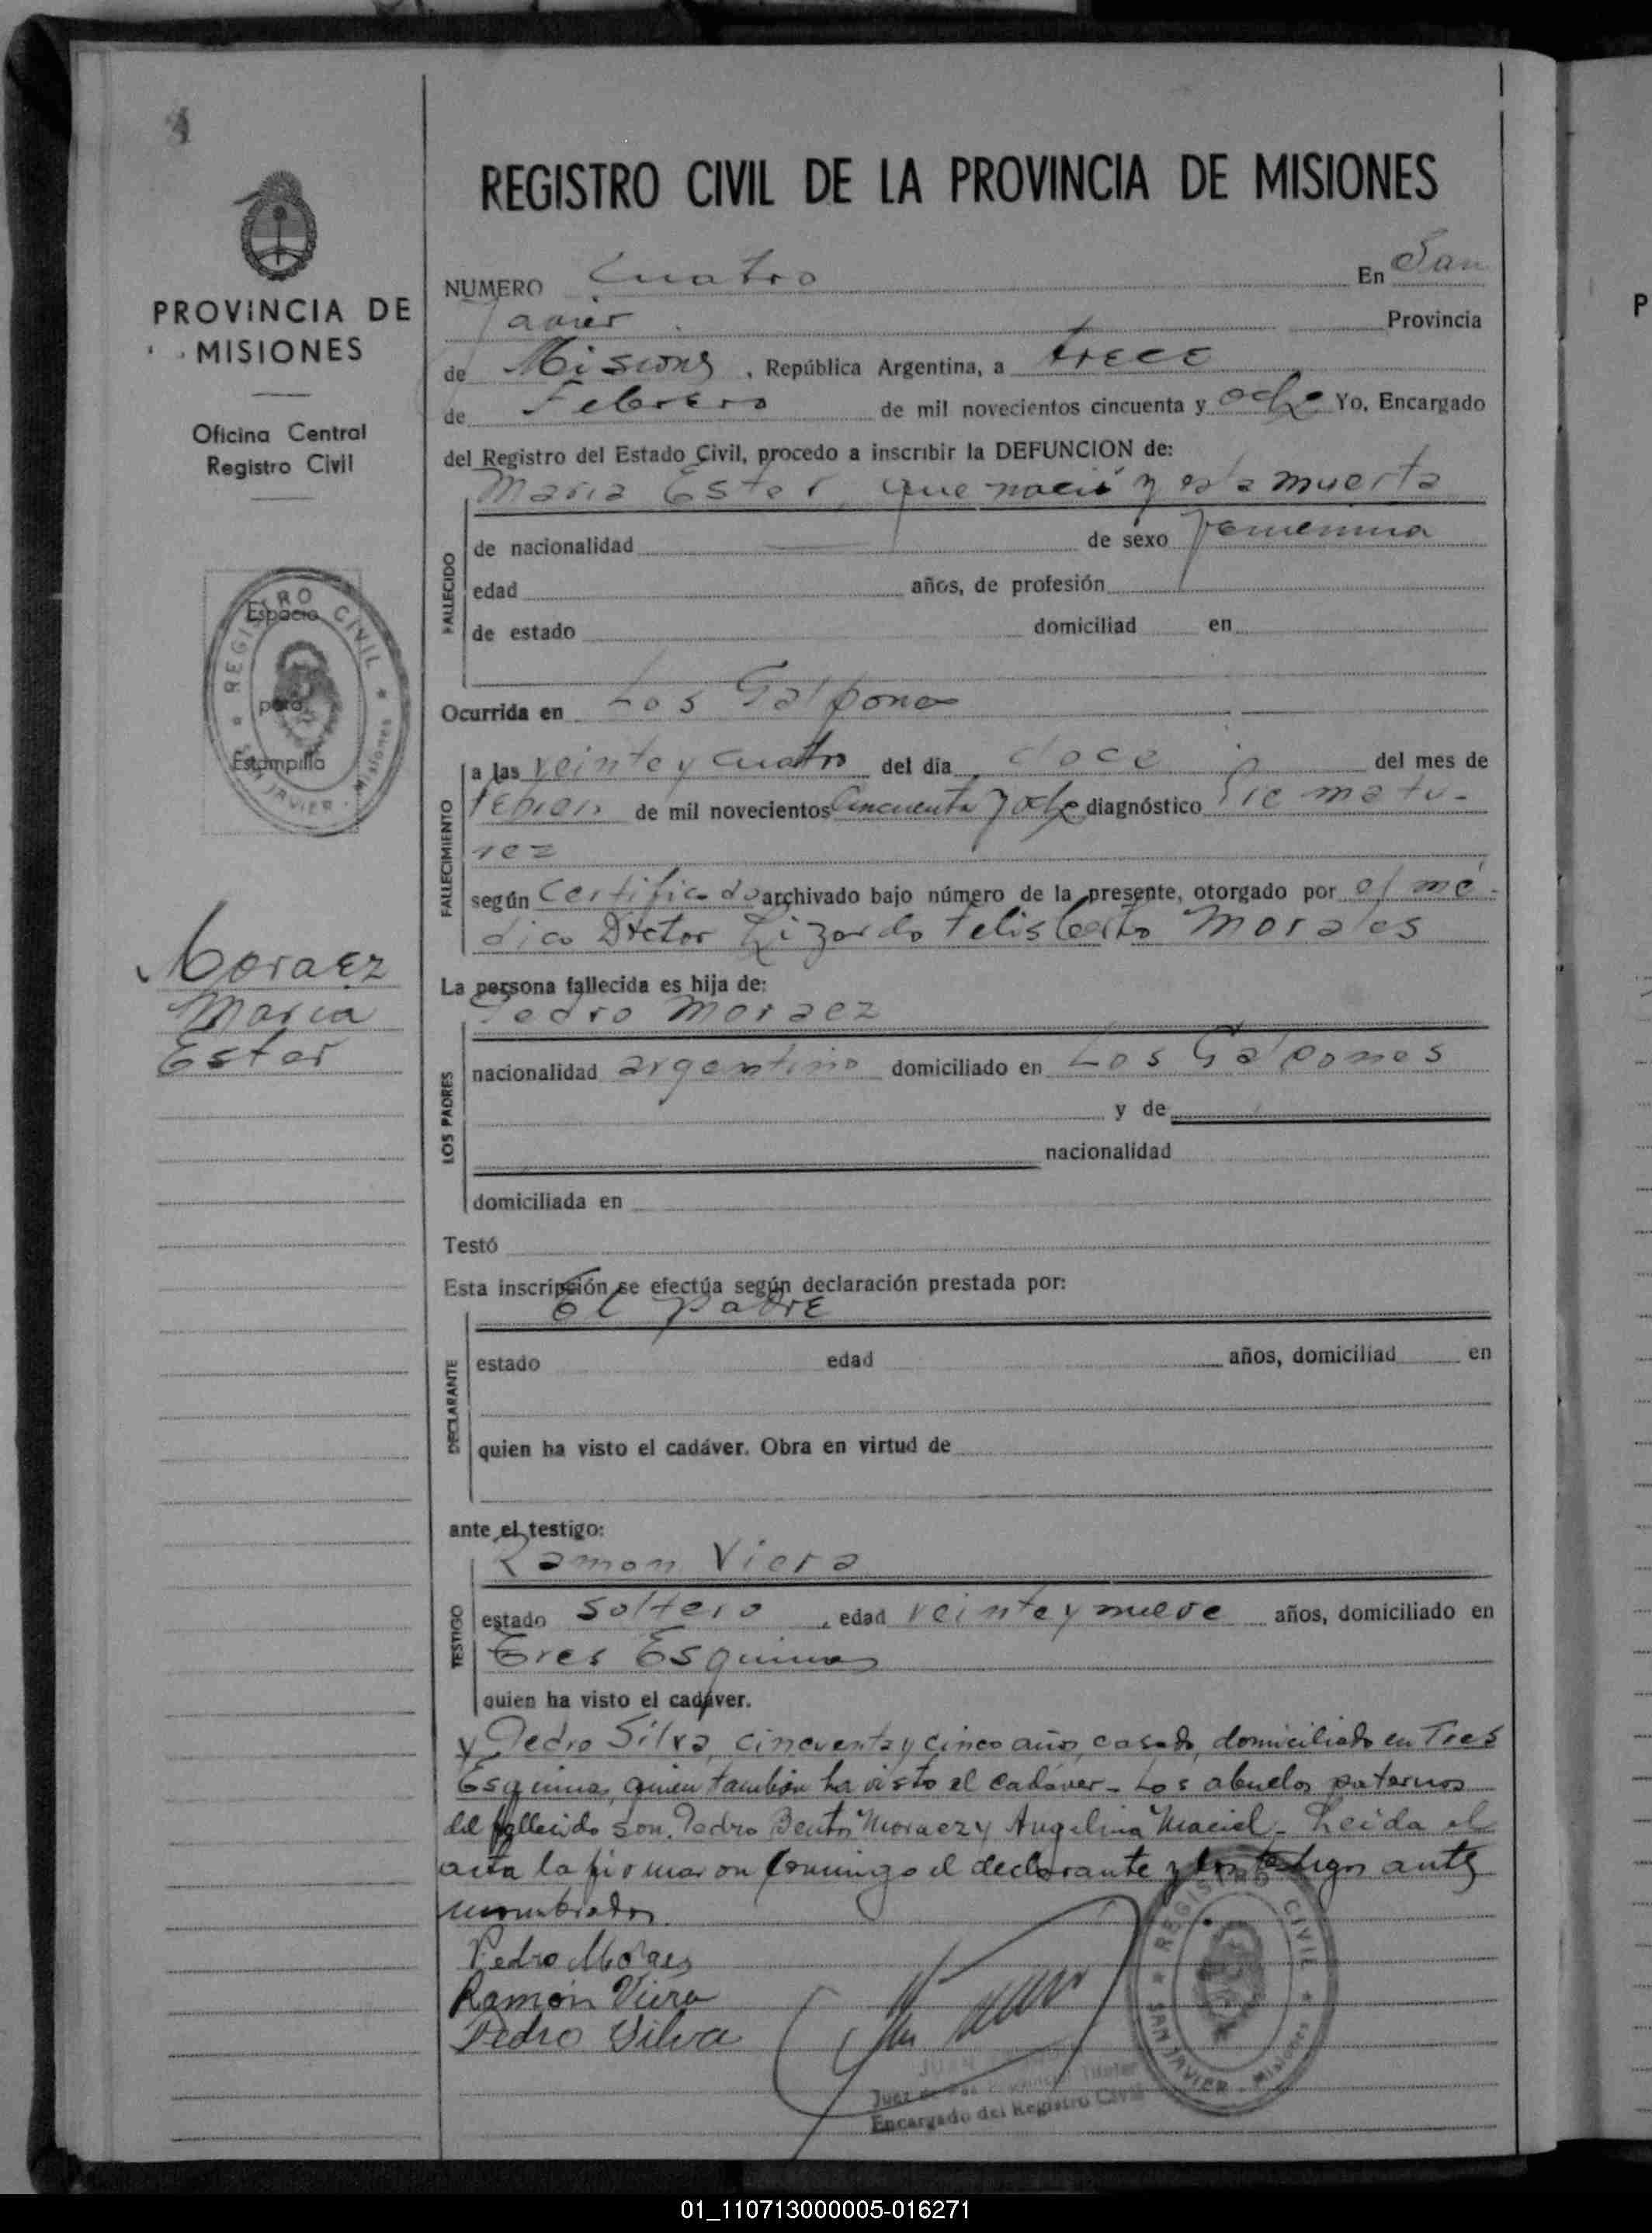 4
REGISTRO CIVIL DE LA PROVINCIA DE MISIONES
PROVINCIA DE
MISIONES
Oficina Central
Registro Civil
Espacio
para
Estampilla
REGISTRO CIVIL
SAN JAVIER - Misiones
Moraez
Maria
Ester
NUMERO Cuatro En San
Javier Provincia
de Misiones, República Argentina, a trece
de Febrero de mil novecientos cincuenta y ocho Yo, Encargado
del Registro del Estado Civil, procedo a inscribir la DEFUNCION de:
Maria Ester, que nació y está muerta
FALLECIDO
de nacionalidad de sexo femenina
edad años, de profesión
de estado domiciliad en
Ocurrida en Los Galpones
FALLECIMIENTO
a las veinte y cuatro del día doce del mes de
febrero de mil novecientos cincuenta y ocho diagnóstico Prematu-
rez
según Certificado archivado bajo número de la presente, otorgado por el mé-
dico Doctor Lizardo Felisberto Morales
La persona fallecida es hija de:
LOS PADRES
Pedro Moraez
nacionalidad argentino domiciliado en Los Galpones
y de
nacionalidad
domiciliada en
Testó
Esta inscripción se efectúa según declaración prestada por:
DECLARANTE
El padre
estado edad años, domiciliad en
quien ha visto el cadáver. Obra en virtud de
ante el testigo:
TESTIGO
Ramon Viera
estado soltero, edad veinte y nueve años, domiciliado en
Tres Esquinas
quien ha visto el cadáver.
y Pedro Silva, cincuenta y cinco años, casado, domiciliado en Tres
Esquinas, quien tambien ha visto el cadáver - Los abuelos paternos
del fallecido son. Pedro Bento Moraez y Angelina Maciel - Leida el
acta la firmaron conmigo el declarante y los testigos ante
nombrados.
Pedro Moraes
Ramón Viera
Pedro Silva
REGISTRO CIVIL
SAN JAVIER - Misiones
JUAN
Juez de Paz Titular
Encargado del Registro Civil
01_110713000005-016271